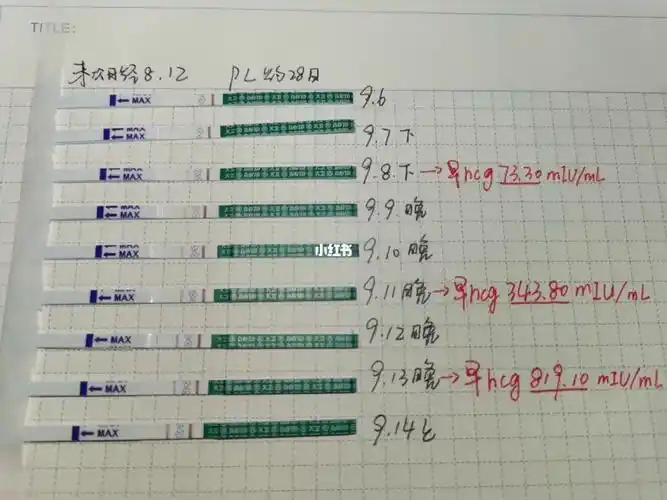 TITLE:
末次月经8.12 PL 28日
MAX 9.6
MAX 9.7下
MAX 9.8.下→早hcg 73.30 mIU/mL
MAX 9.9.晚
MAX 小红书 9.10晚
MAX 9.11晚→早hcg 343.80 mIU/mL
MAX 9.12晚
MAX 9.13晚→早hcg 819.10 mIU/mL
MAX 9.14上